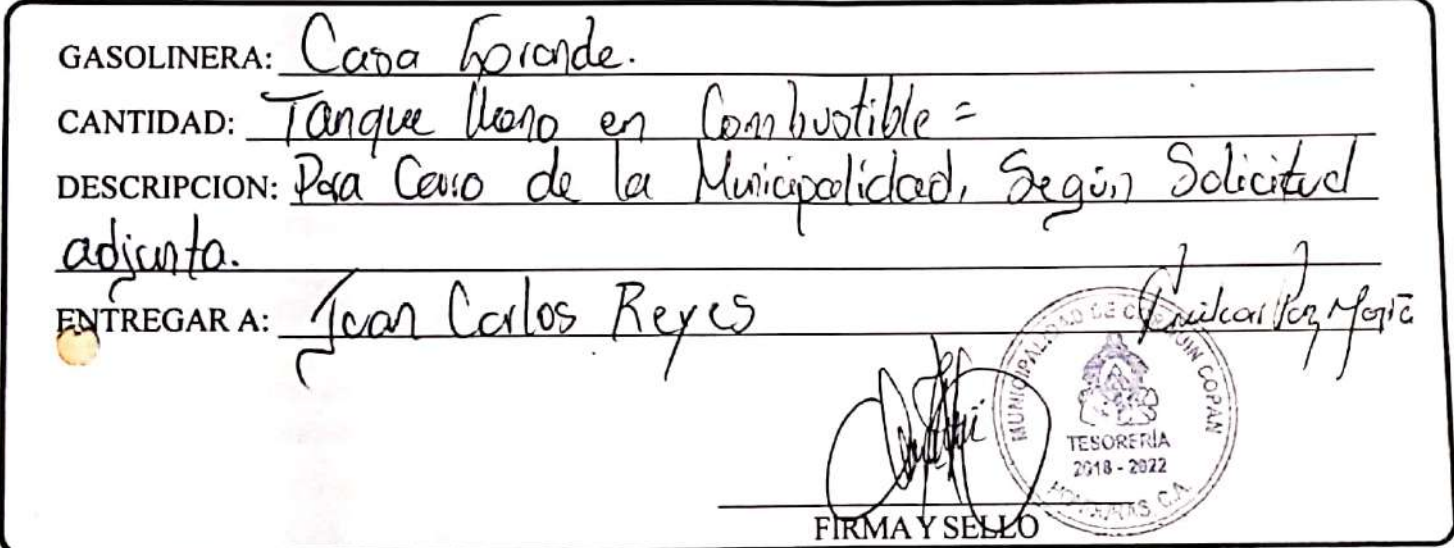 GASOLINERA: Casa Grande.
CANTIDAD: Tanque lleno en Combustible =
DESCRIPCION: Para Carro de la Municipalidad, Según Solicitud
adjunta.
ENTREGAR A: Juan Carlos Reyes
MUNICIPALIDAD DE CUCUYAGUA COPAN
TESORERÍA
2018 - 2022
HONDURAS, C.A.
FIRMA Y SELLO